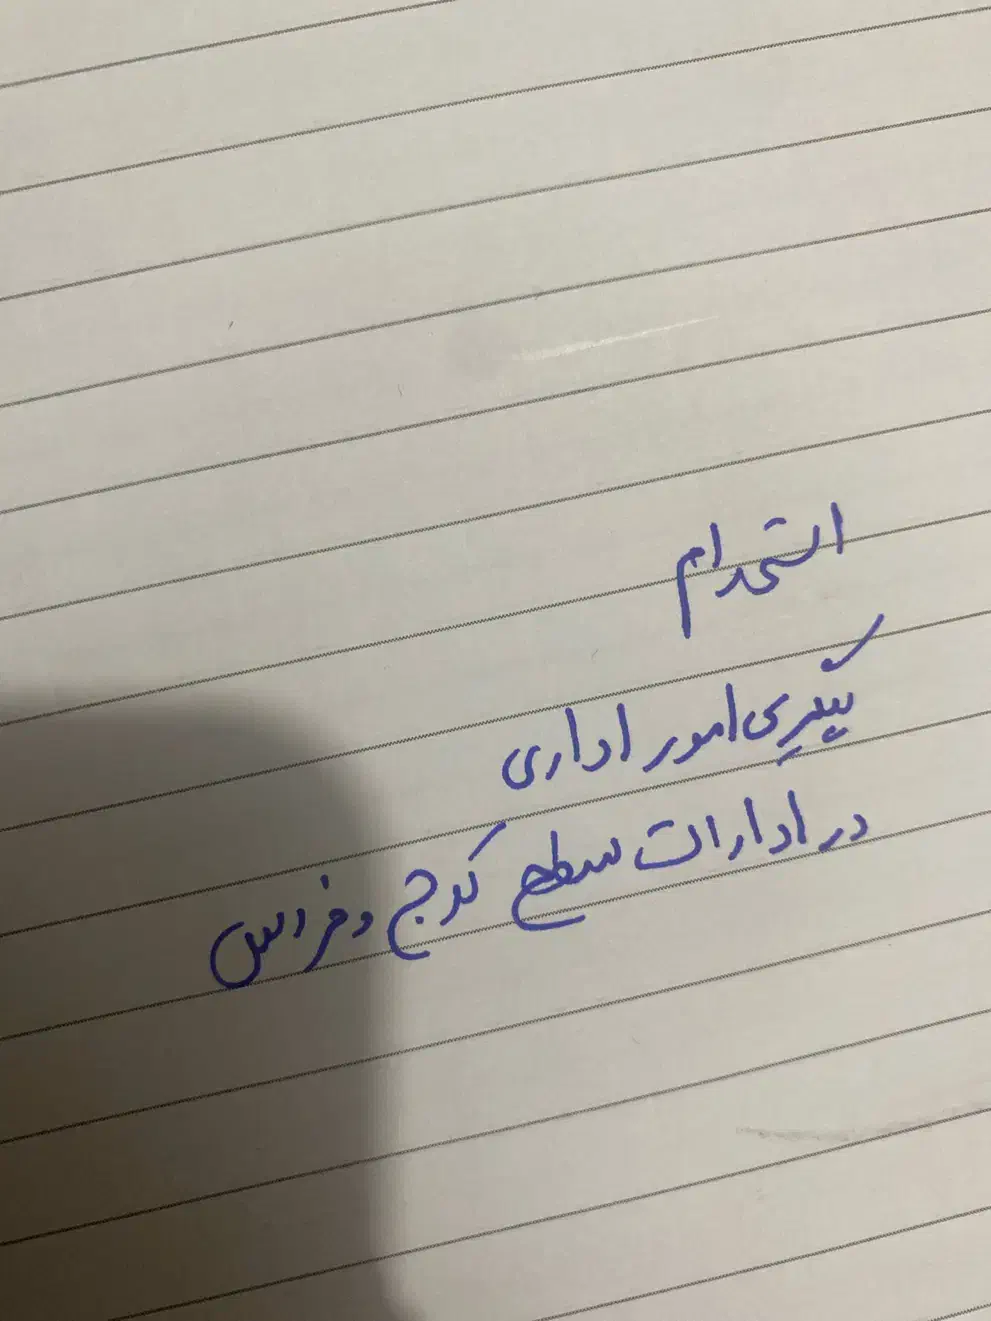 استخدام
پیگیری امور اداری
در ادارات سطح کرج و فردیس